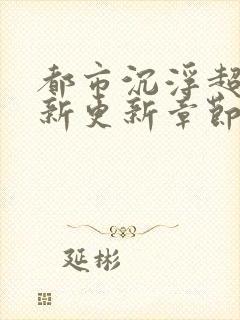 都市沉浮超
新更新章節
延彬